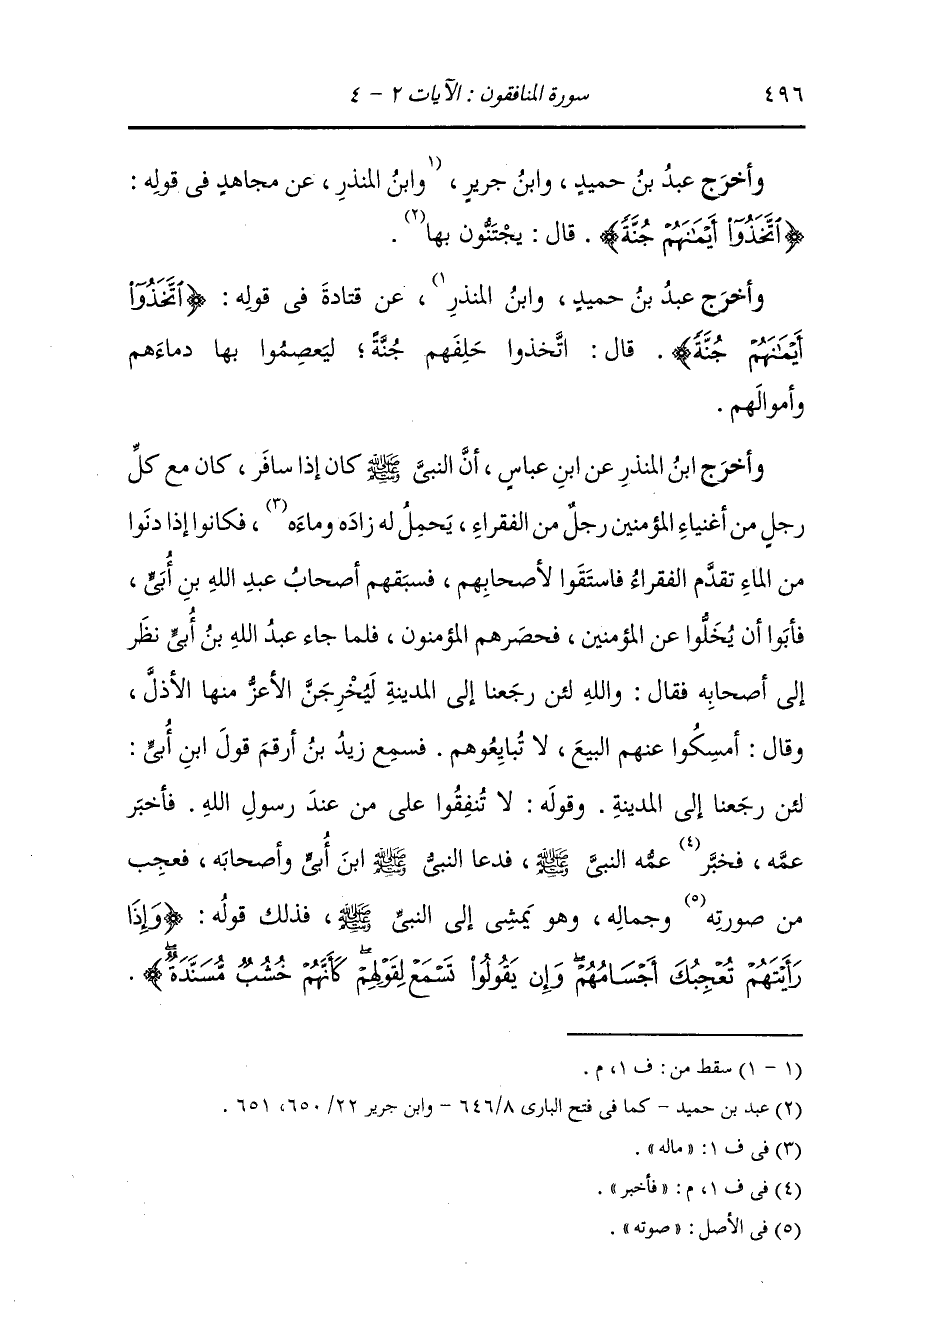 ٤٩٦ سورة المنافقون : الآيات ٢ - ٤
وأخرَج عبدُ بنُ حميدٍ ، وابنُ جريرٍ ، (١وابنُ المنذرِ ، عن مجاهدٍ فى قولِه :
﴿ٱتَّخَذُوٓا۟ أَيْمَـٰنَهُمْ جُنَّةً﴾ . قال : يجْتَنُّون بها(٢) .
وأخرَج عبدُ بنُ حميدٍ ، وابنُ المنذرِ١) ، عن قتادةَ فى قولِه : ﴿ٱتَّخَذُوٓا۟
أَيْمَـٰنَهُمْ جُنَّةً﴾ . قال : اتَّخذوا حَلِفَهم جُنَّةً ؛ ليَعصِمُوا بها دماءَهم
وأموالَهم .
وأخرَج ابنُ المنذرِ عن ابنِ عباسٍ ، أنَّ النبىَّ ﷺ كان إذا سافَر ، كان مع كلِّ
رجلٍ من أغنياءِ المؤمنين رجلٌ من الفقراءِ ، يَحمِلُ له زادَه وماءَه(٣) ، فكانوا إذا دنَوا
من الماءِ تقدَّم الفقراءُ فاستَقَوا لأصحابِهم ، فسبَقهم أصحابُ عبدِ اللهِ بنِ أُبَىٍّ ،
فأبَوا أن يُخَلُّوا عن المؤمنين ، فحصَرهم المؤمنون ، فلما جاء عبدُ اللهِ بنُ أُبىٍّ نظَر
إلى أصحابِه فقال : واللهِ لئن رجَعنا إلى المدينةِ لَيُخْرِجَنَّ الأعزُّ منها الأذلَّ ،
وقال : أمسِكُوا عنهم البيعَ ، لا تُبايِعُوهم . فسمِع زيدُ بنُ أرقمَ قولَ ابنِ أُبىٍّ :
لئن رجَعنا إلى المدينةِ . وقولَه : لا تُنفِقُوا على من عندَ رسولِ اللهِ . فأخبَر
عمَّه ، فخبَّر(٤) عمُّه النبىَّ ﷺ ، فدعا النبىُّ ﷺ ابنَ أُبىٍّ وأصحابَه ، فعجِب
من صورتِه(٥) وجمالِه ، وهو يَمشِى إلى النبىِّ ﷺ ، فذلك قولُه : ﴿وَإِذَا
رَأَيْتَهُمْ تُعْجِبُكَ أَجْسَامُهُمْ ۖ وَإِن يَقُولُوا۟ تَسْمَعْ لِقَوْلِهِمْ ۖ كَأَنَّهُمْ خُشُبٌ مُّسَنَّدَةٌ ۖ﴾ .
(١ - ١) سقط من : ف ١، م .
(٢) عبد بن حميد - كما فى فتح البارى ٦٤٦/٨ - وابن جرير ٢٢/ ٦٥٠، ٦٥١ .
(٣) فى ف ١: « ماله » .
(٤) فى ف ١، م : « فأخبر » .
(٥) فى الأصل : « صوته » .